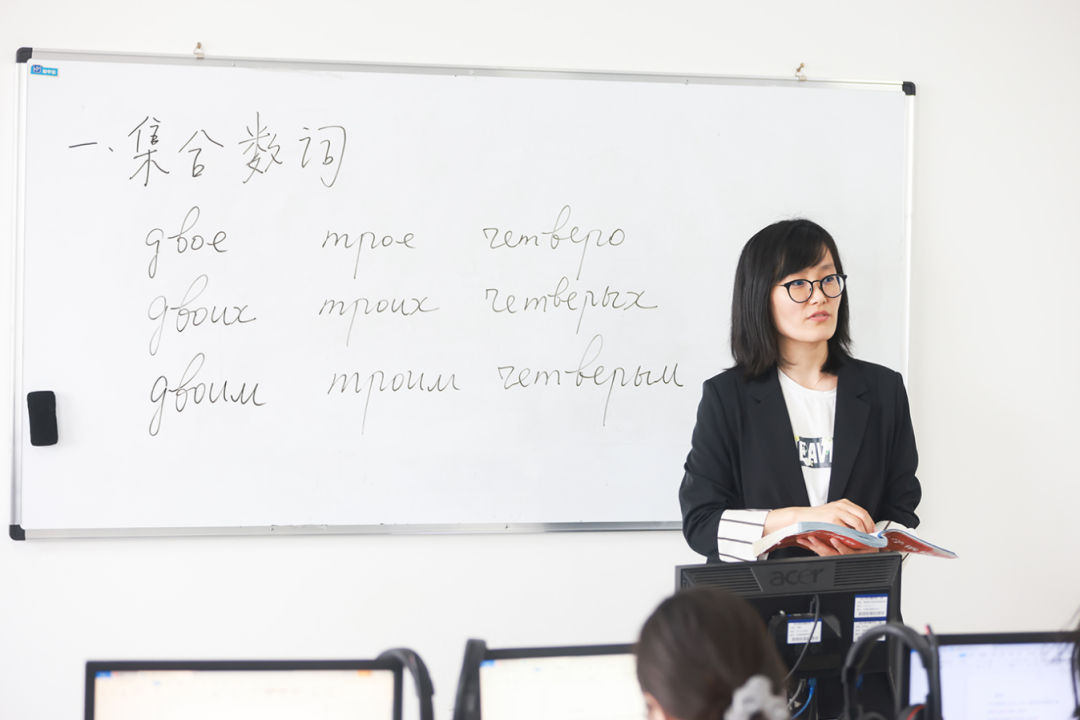 一、集合数词
двое трое четверо
двоих троих четверых
двоим троим четверым
EAV
acer